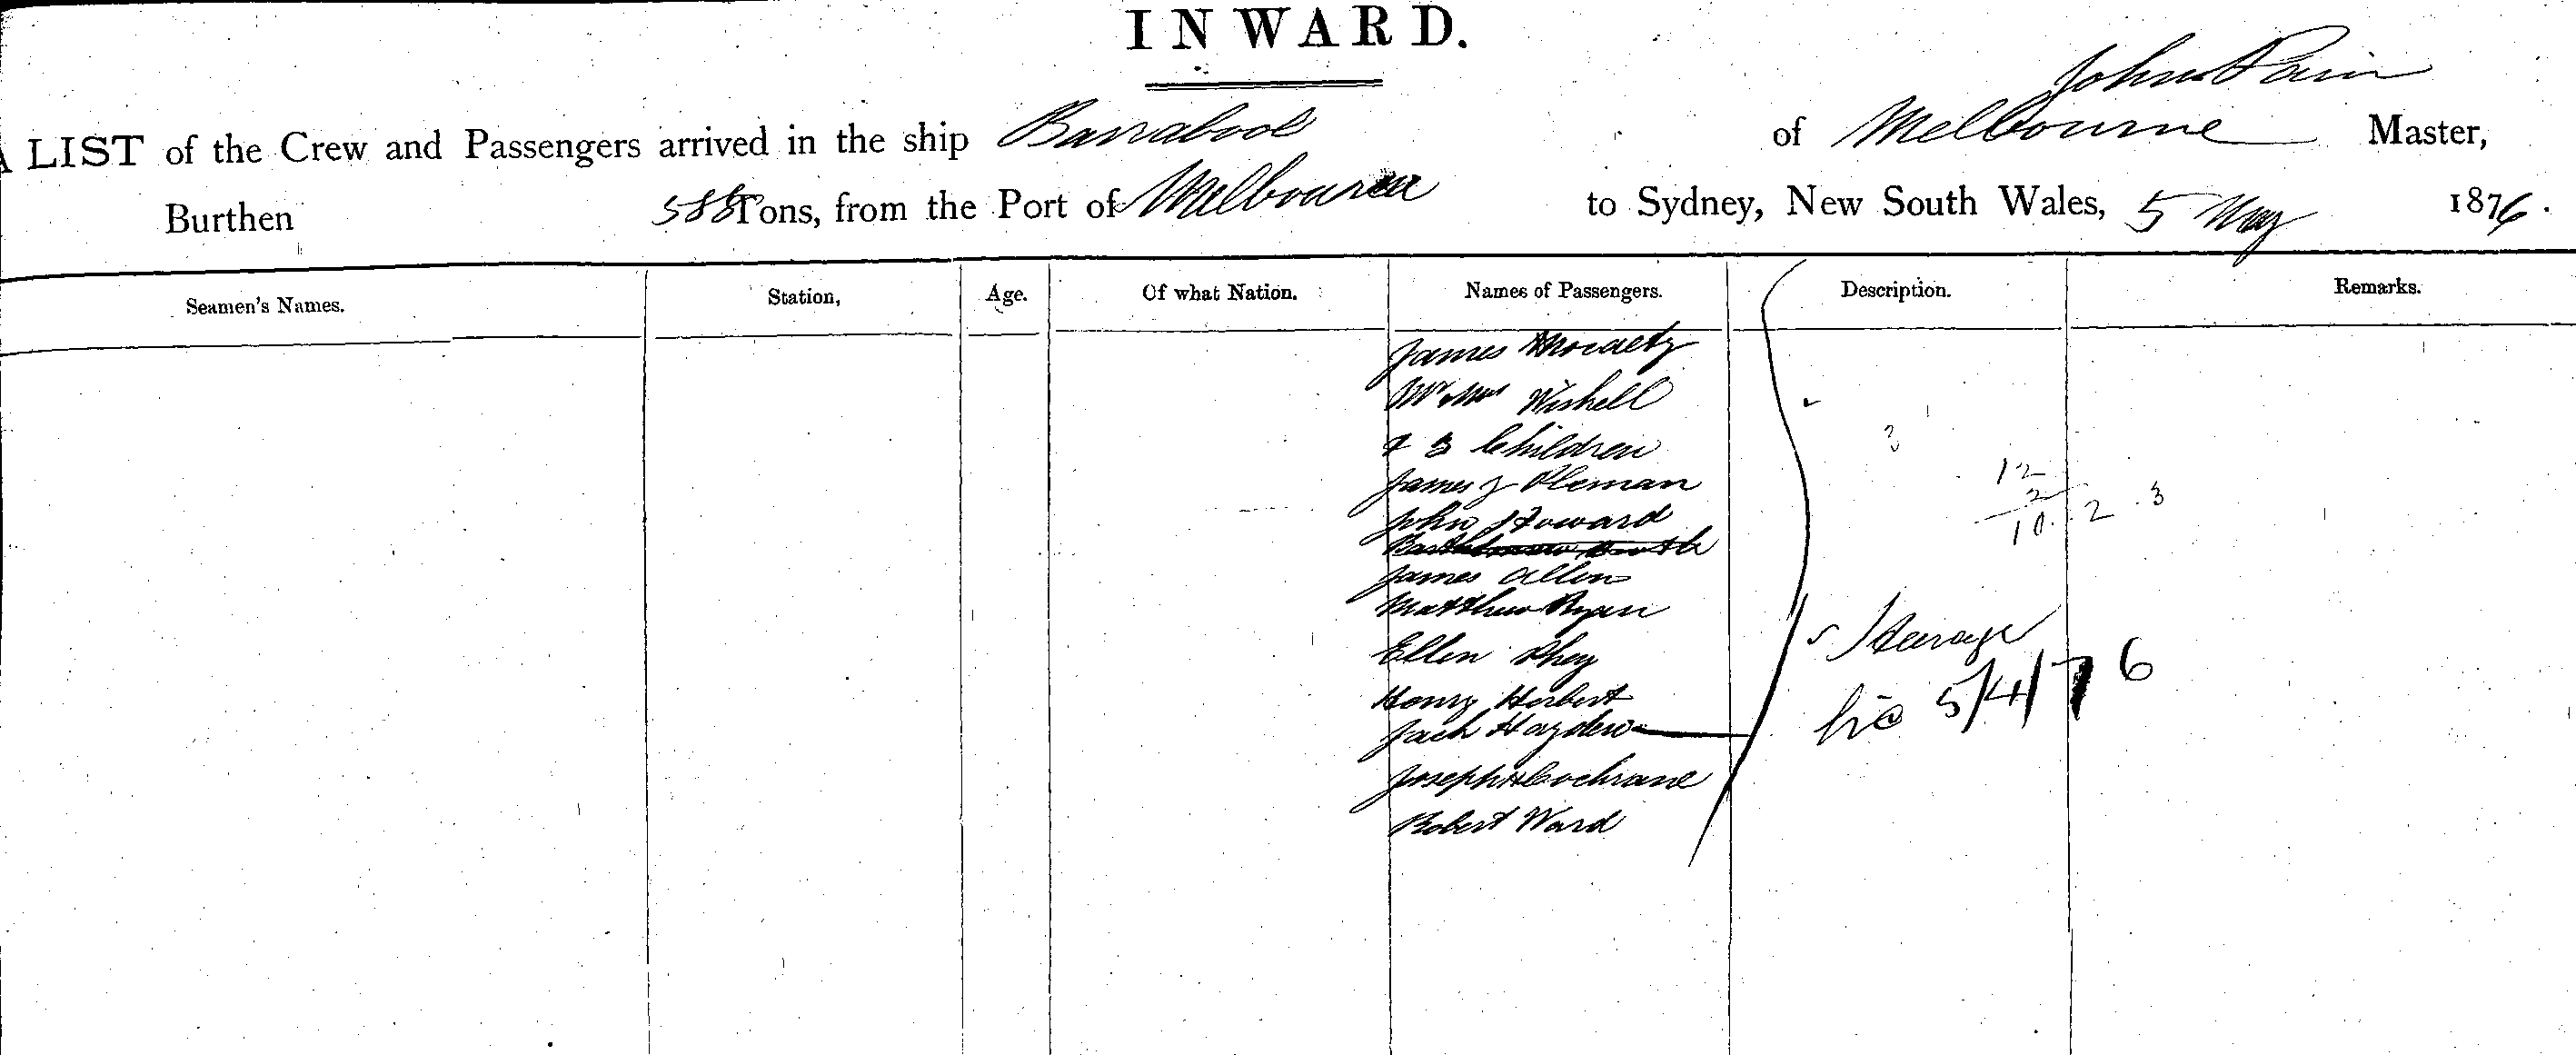 INWARD.
John Pain
A LIST of the Crew and Passengers arrived in the ship Barrabool of Melbourne Master,
Burthen 588 Tons, from the Port of Melbourne to Sydney, New South Wales, 5 May 1876.
Seamen's Names. Station, Age. Of what Nation. Names of Passengers. Description. Remarks.
James
Mr & Mrs Wishell
& 3 Children
James J Pleman
John Howard
James Allen
Matthew Ryan
Ellen
Henry Herbert
Jack Hayden
Joseph H Cochrane
Robert Ward
3
12
2
10. 2 . 3
Steerage
5/4/76